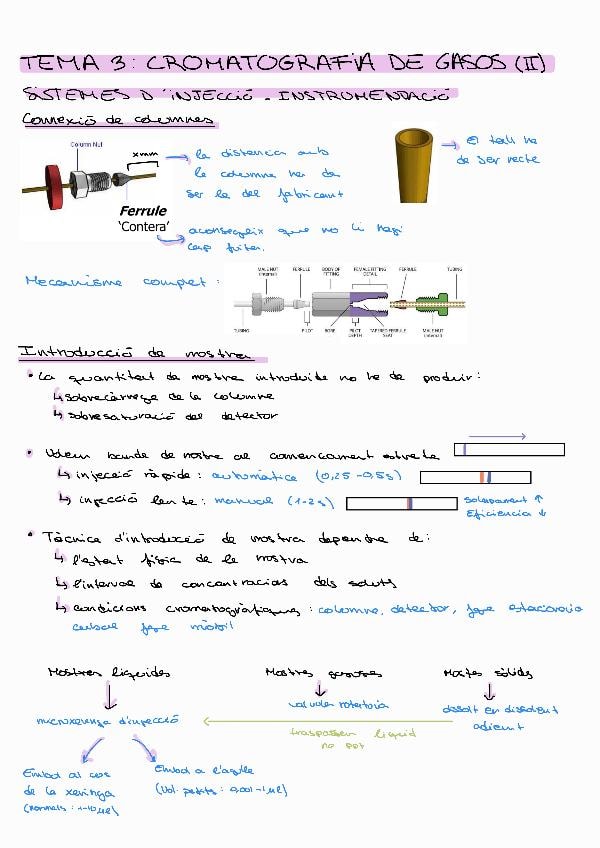 TEMA 3: CROMATOGRAFIA DE GASOS (II)
SISTEMES D'INJECCIÓ - INSTRUMENTACIÓ
Connexió de columnes
Column Nut
x mm
la distancia amb
la columna ha de
ser la del fabricant
El tall ha
de ser recte
Ferrule
'Contera'
aconsegueix que no hi hagi
cap fuites.
Mecanisme complet:
MALE NUT
(internal)
FERRULE
BODY OF
FITTING
FEMALE FITTING
DETAIL
FERRULE
TUBING
TUBING
PILOT
BORE
PILOT
DEPTH
TAPERED FERRULE
SEAT
MALE NUT
(internal)
Introducció de mostra
• La quantitat de mostra introduida no ha de produir:
↳ sobrecàrrega de la columna
↳ sobresaturació del detector
• Volem banda de mostra al començament estreta
↳ injecció ràpida: automàtica (0,25-0,5s)
↳ injecció lenta: manual (1-2s)
Solapament ↑
Eficiencia ↓
• Tècnica d'introducció de mostra dependra de:
↳ l'estat físic de la mostra
↳ l'interval de concentracions dels soluts
↳ condicions cromatogràfiques: columna, detector, fase estacionaria
cabal fase mòbil
Mostres líquides
Mostres gasoses
Mostes sòlids
microxeringa d'injecció
valvules rotatoria
dissolt en dissolvent
adient
traspassem líquid
no ppt
Embol al cos
de la xeringa
(normals: 1-10 µl)
Embol a l'agulla
(Vol. petits: 0,001-1 µl)